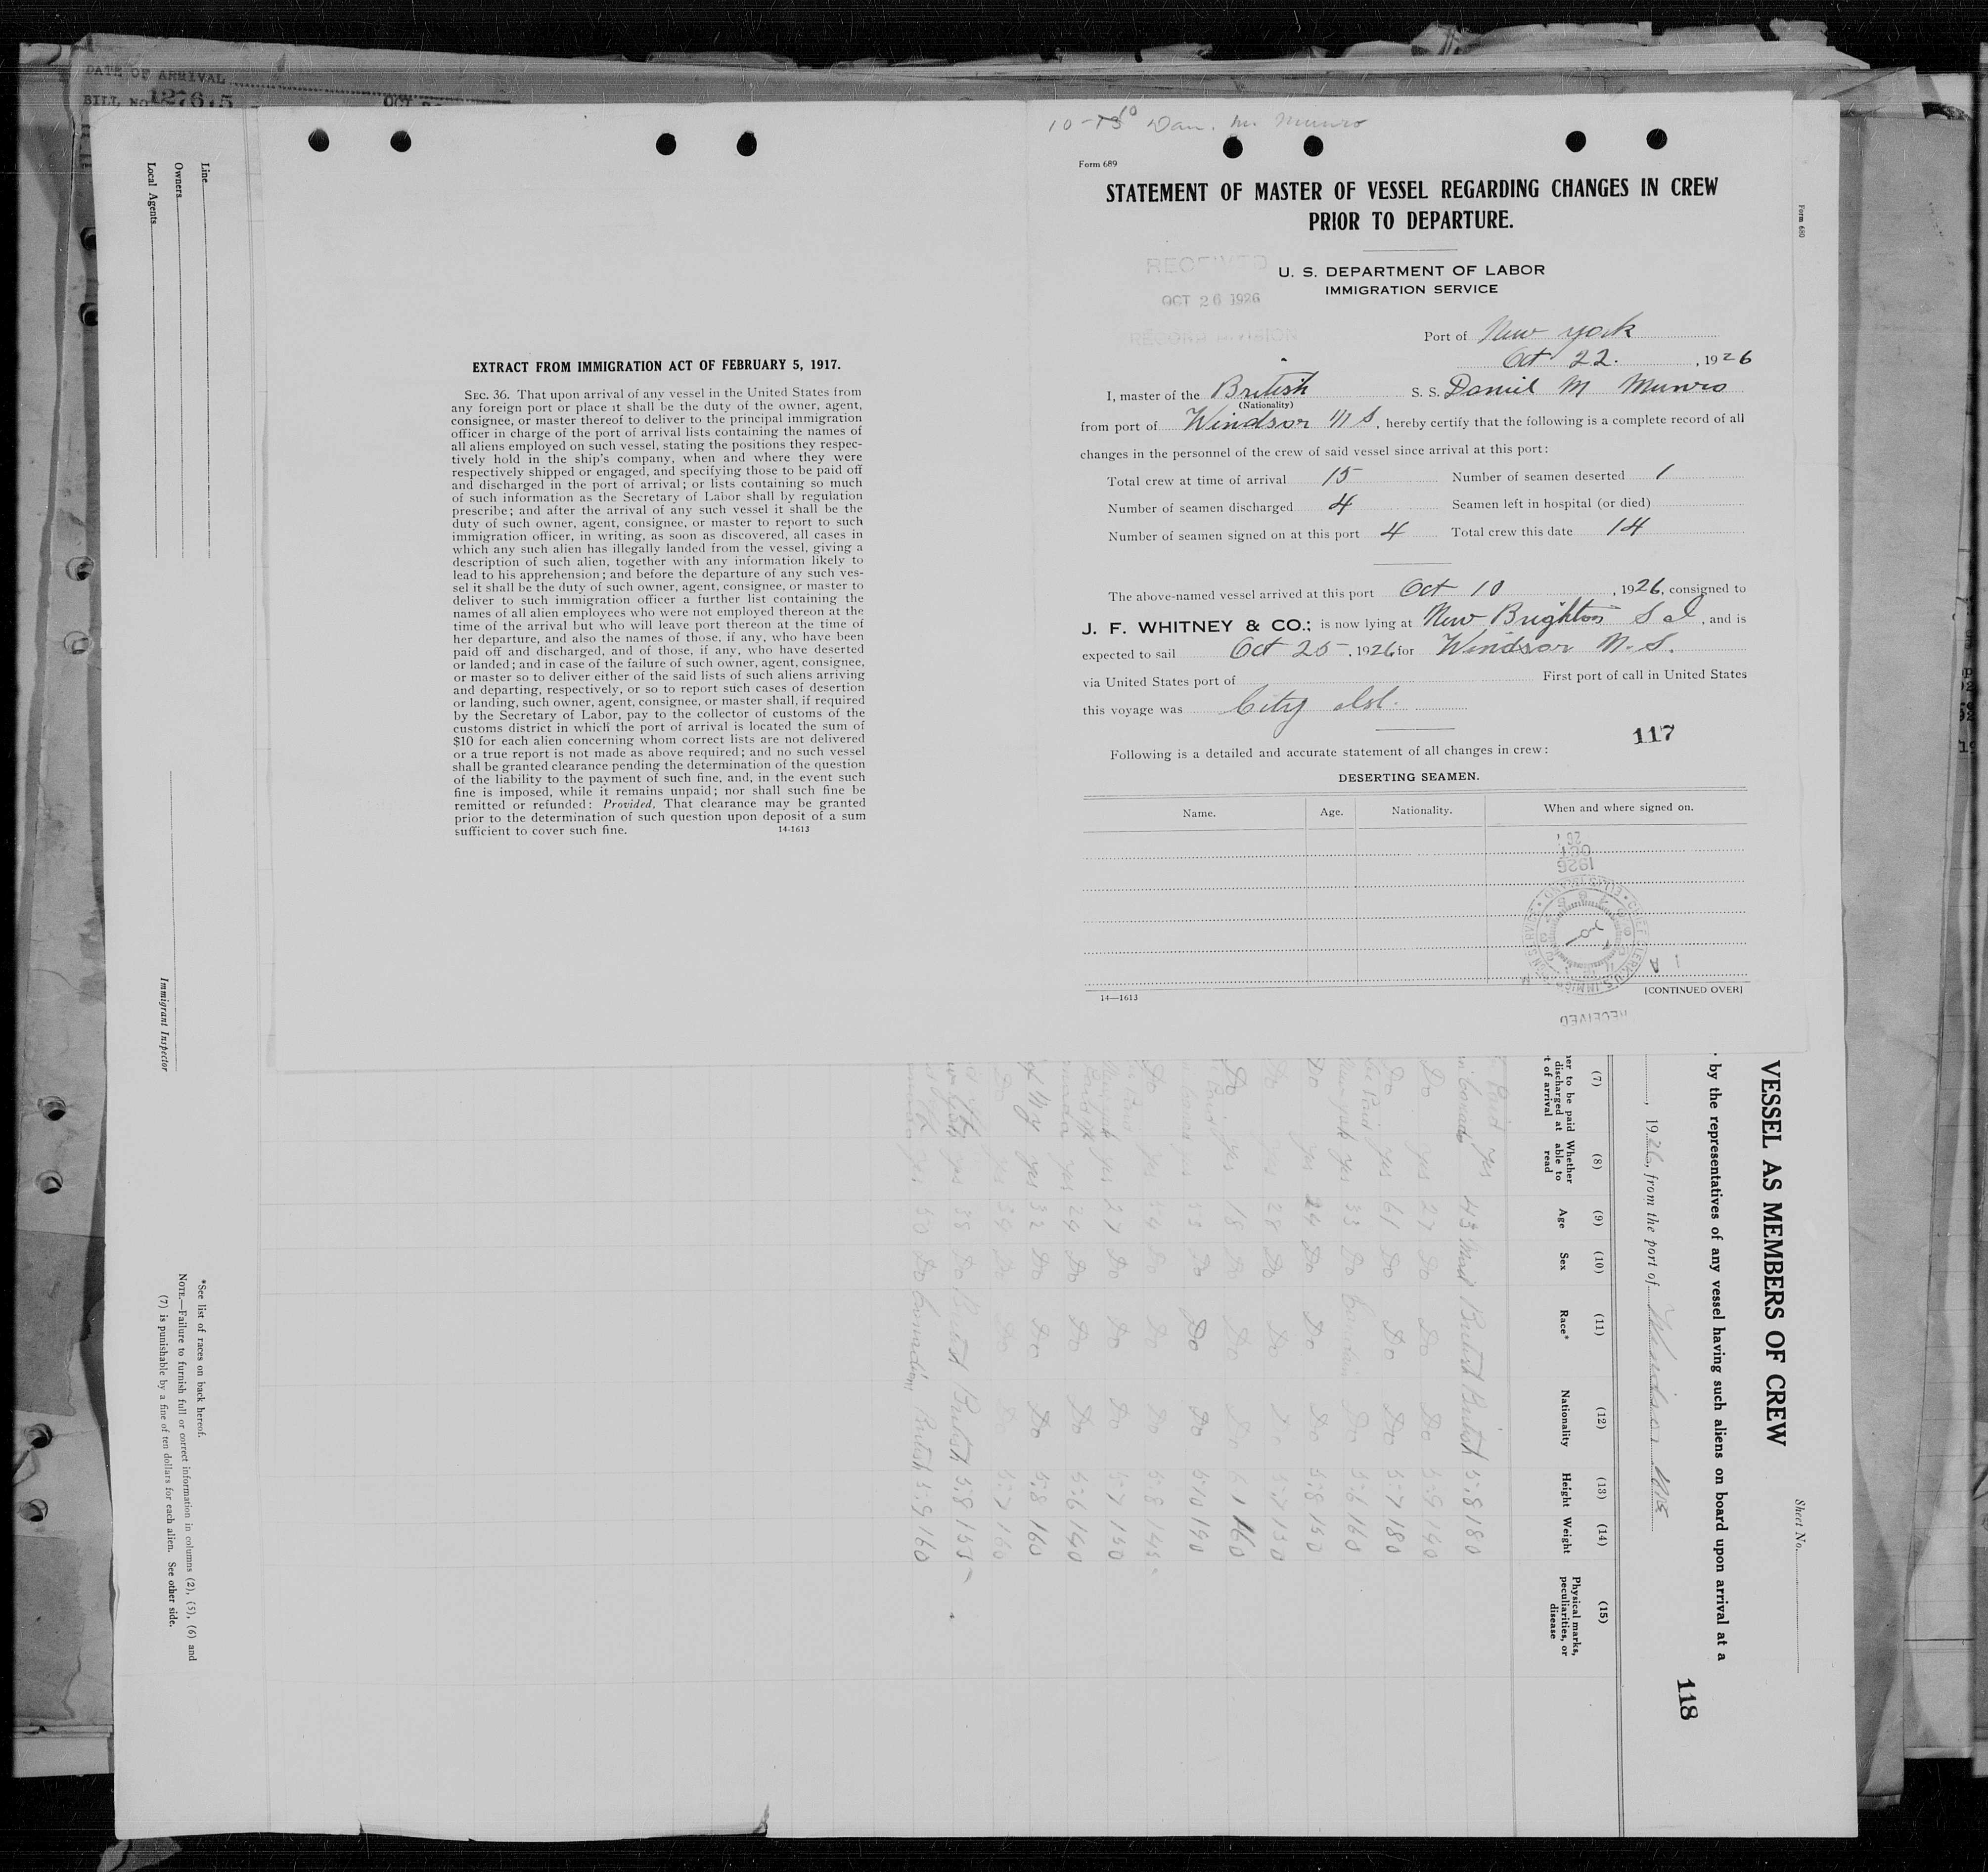 DATE OF ARRIVAL
BILL NO. 12761.5
OCT
Line
Owners
Local Agents
Immigrant Inspector
*See list of races on back hereof.
NOTE.—Failure to furnish full or correct information in columns (2), (5), (6) and
(7) is punishable by a fine of ten dollars for each alien. See other side.
EXTRACT FROM IMMIGRATION ACT OF FEBRUARY 5, 1917.
SEC. 36. That upon arrival of any vessel in the United States from
any foreign port or place it shall be the duty of the owner, agent,
consignee, or master thereof to deliver to the principal immigration
officer in charge of the port of arrival lists containing the names of
all aliens employed on such vessel, stating the positions they respec-
tively hold in the ship's company, when and where they were
respectively shipped or engaged, and specifying those to be paid off
and discharged in the port of arrival; or lists containing so much
of such information as the Secretary of Labor shall by regulation
prescribe; and after the arrival of any such vessel it shall be the
duty of such owner, agent, consignee, or master to report to such
immigration officer, in writing, as soon as discovered, all cases in
which any such alien has illegally landed from the vessel, giving a
description of such alien, together with any information likely to
lead to his apprehension; and before the departure of any such ves-
sel it shall be the duty of such owner, agent, consignee, or master to
deliver to such immigration officer a further list containing the
names of all alien employees who were not employed thereon at the
time of the arrival but who will leave port thereon at the time of
her departure, and also the names of those, if any, who have been
paid off and discharged, and of those, if any, who have deserted
or landed; and in case of the failure of such owner, agent, consignee,
or master so to deliver either of the said lists of such aliens arriving
and departing, respectively, or so to report such cases of desertion
or landing, such owner, agent, consignee, or master shall, if required
by the Secretary of Labor, pay to the collector of customs of the
customs district in which the port of arrival is located the sum of
$10 for each alien concerning whom correct lists are not delivered
or a true report is not made as above required; and no such vessel
shall be granted clearance pending the determination of the question
of the liability to the payment of such fine, and, in the event such
fine is imposed, while it remains unpaid; nor shall such fine be
remitted or refunded: Provided, That clearance may be granted
prior to the determination of such question upon deposit of a sum
sufficient to cover such fine. 14-1613
Dan. M. Munro
Form 689
STATEMENT OF MASTER OF VESSEL REGARDING CHANGES IN CREW
PRIOR TO DEPARTURE.
U. S. DEPARTMENT OF LABOR
IMMIGRATION SERVICE
RECEIVED
OCT 26 1926
RECORD DIVISION
Port of New York
Oct 22. , 1926
I, master of the British S. S. Daniel M Munro
(Nationality)
from port of Windsor N S, hereby certify that the following is a complete record of all
changes in the personnel of the crew of said vessel since arrival at this port:
Total crew at time of arrival 15 Number of seamen deserted 1
Number of seamen discharged 4 Seamen left in hospital (or died)
Number of seamen signed on at this port 4 Total crew this date 14
The above-named vessel arrived at this port Oct 10 , 1926, consigned to
J. F. WHITNEY & CO.; is now lying at New Brighton S I , and is
expected to sail Oct 25 , 1926 for Windsor N. S.
via United States port of First port of call in United States
this voyage was City Isl.
117
Following is a detailed and accurate statement of all changes in crew:
DESERTING SEAMEN.
Name. Age. Nationality. When and where signed on.
OCT
1926
RECEIVED
14—1613 [CONTINUED OVER]
Form 680
VESSEL AS MEMBERS OF CREW
Sheet No.
by the representatives of any vessel having such aliens on board upon arrival at a
, 1926, from the port of Windsor N S
118
(7) (8) (9) (10) (11) (12) (13) (14) (15)
Whether able to read
Age
Sex
Race*
Nationality
Height
Weight
Physical marks, peculiarities, or disease
yes 43 Male British British 5.8 180
Do yes 27 Do Do Do 5.9 140
Do yes 61 Do Do Do 5.7 180
yes 33 Do Canadian Do 5.6 160
Do yes 24 Do Do Do 5.8 150
28 Do Do Do 5.7 150
Do yes 18 Do Do Do 6 1 160
Do Do Do 5.10 190
Do yes Do Do Do 5.8 145
yes 27 Do Do Do 5.7 150
yes 24 Do Do Do 5.6 140
yes 32 Do Do Do 5.8 160
Do yes 34 Do Do Do 5.7 160
yes 35 Do British British 5.8 155
Do Canadian British 5.9 160